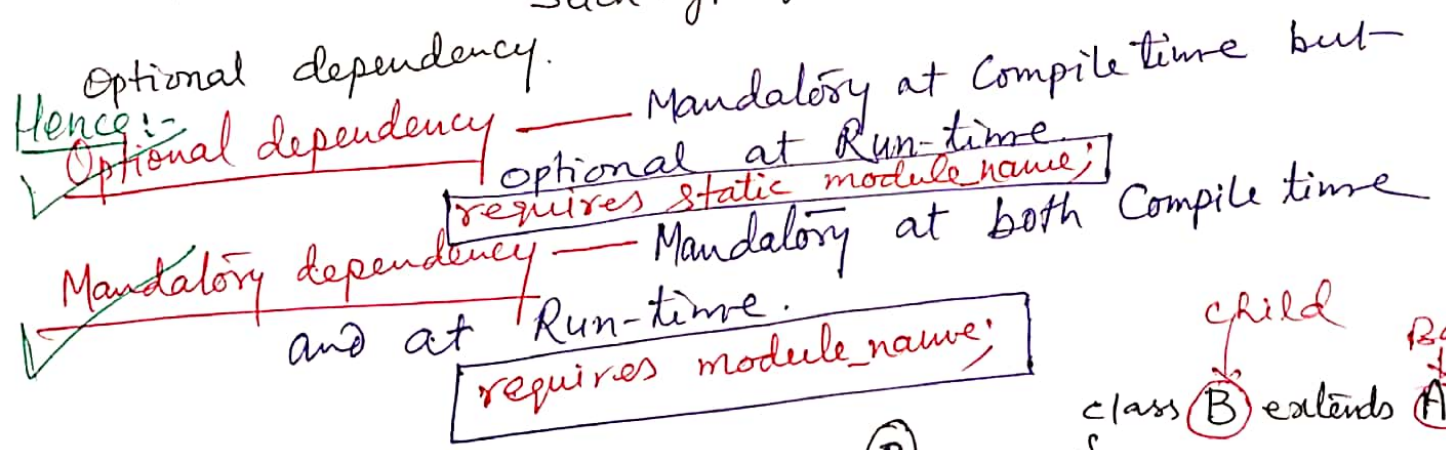 Optional dependency.
Hence:-
Optional dependency — Mandatory at Compile time but
optional at Run-time.
requires static module_name;
Mandatory dependency — Mandatory at both Compile time
and at Run-time.
requires module_name;
child
class B extends A